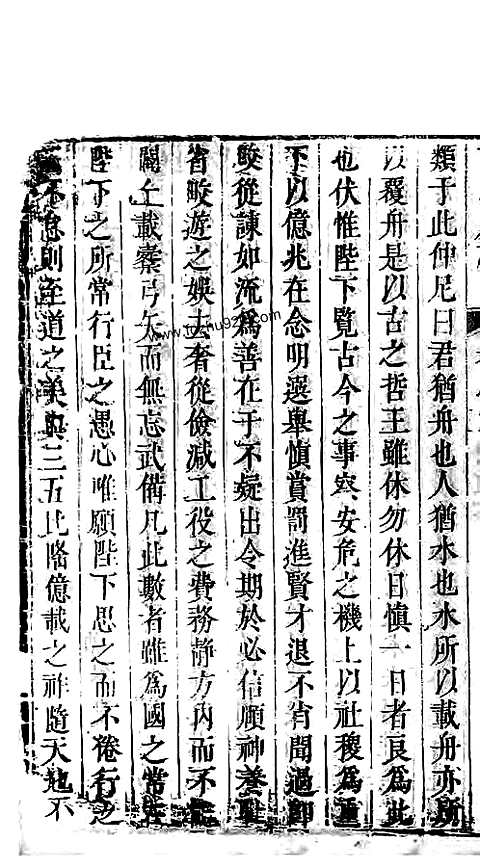 類于此仲尼曰君猶舟也人猶水也水所以載舟亦所
以覆舟是以古之哲王雖休勿休日慎一日者良為此
也伏惟陛下覽古今之事察安危之機上以社稷為重
下以億兆在念明選舉慎賞罰進賢才退不肖聞過即
改從諫如流為善在于不疑出令期於必信頤神養性
省畋遊之娛去奢從儉減工役之費務靜方內而不
闢土載櫜弓矢而無忘武備凡此數者雖為國之常
陛下之所常行臣之愚心唯願陛下思之而不倦行之
不怠則至道之美與三五比隆億載之祚隨天地不
www.fozhu920.com